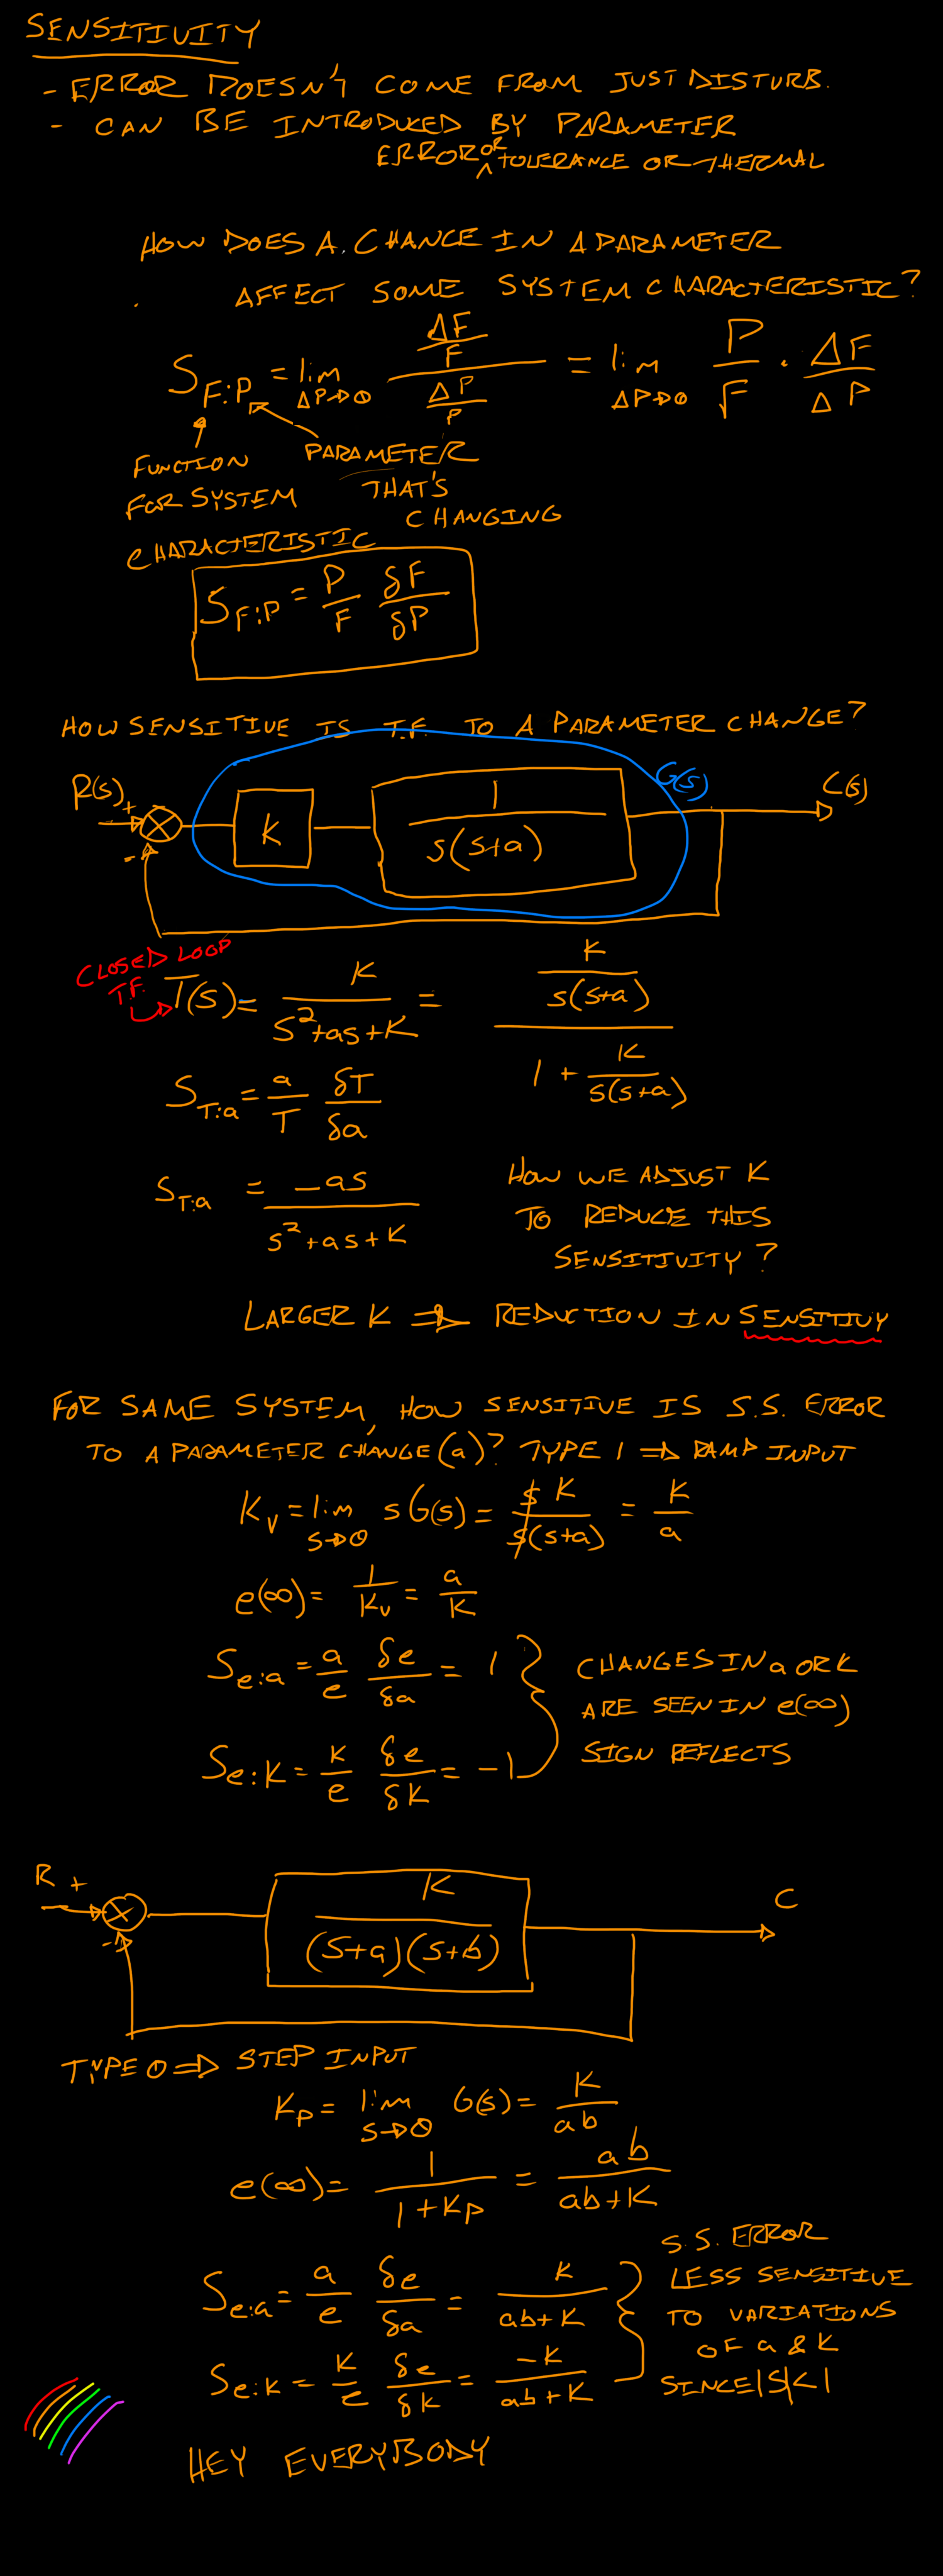 SENSITIVITY
- ERROR DOESN'T COME FROM JUST DISTURB.
- CAN BE INTRODUCED BY PARAMETER
ERROR OR TOLERANCE OR THERMAL
HOW DOES A CHANGE IN A PARAMETER
AFFECT SOME SYSTEM CHARACTERISTIC?
S_F:P = lim ΔP→0 (ΔF/F)/(ΔP/P) = lim ΔP→0 P/F · ΔF/ΔP
FUNCTION
FOR SYSTEM
CHARACTERISTIC
PARAMETER
THAT'S
CHANGING
S_F:P = P/F δF/δP
HOW SENSITIVE IS T.F. TO A PARAMETER CHANGE?
R(s) + - K 1/(s(s+a)) G(s) C(s)
CLOSED LOOP
T.F.
T(s) = K/(s²+as+K) = (K/(s(s+a)))/(1 + K/(s(s+a)))
S_T:a = a/T δT/δa
S_T:a = -as/(s²+as+K)
HOW WE ADJUST K
TO REDUCE THIS
SENSITIVITY?
LARGER K ⇒ REDUCTION IN SENSITIVY
FOR SAME SYSTEM, HOW SENSITIVE IS S.S. ERROR
TO A PARAMETER CHANGE (a)? TYPE 1 ⇒ RAMP INPUT
K_v = lim s→0 sG(s) = sK/(s(s+a)) = K/a
e(∞) = 1/K_v = a/K
S_e:a = a/e δe/δa = 1
S_e:K = K/e δe/δK = -1
CHANGES IN a OR K
ARE SEEN IN e(∞)
SIGN REFLECTS
R + - K/((s+a)(s+b)) C
TYPE 0 ⇒ STEP INPUT
K_p = lim s→0 G(s) = K/ab
e(∞) = 1/(1+K_p) = ab/(ab+K)
S_e:a = a/e δe/δa = K/(ab+K)
S_e:K = K/e δe/δK = -K/(ab+K)
S.S. ERROR
LESS SENSITIVE
TO VARIATIONS
OF a & K
SINCE |S|<1
HEY EVERYBODY